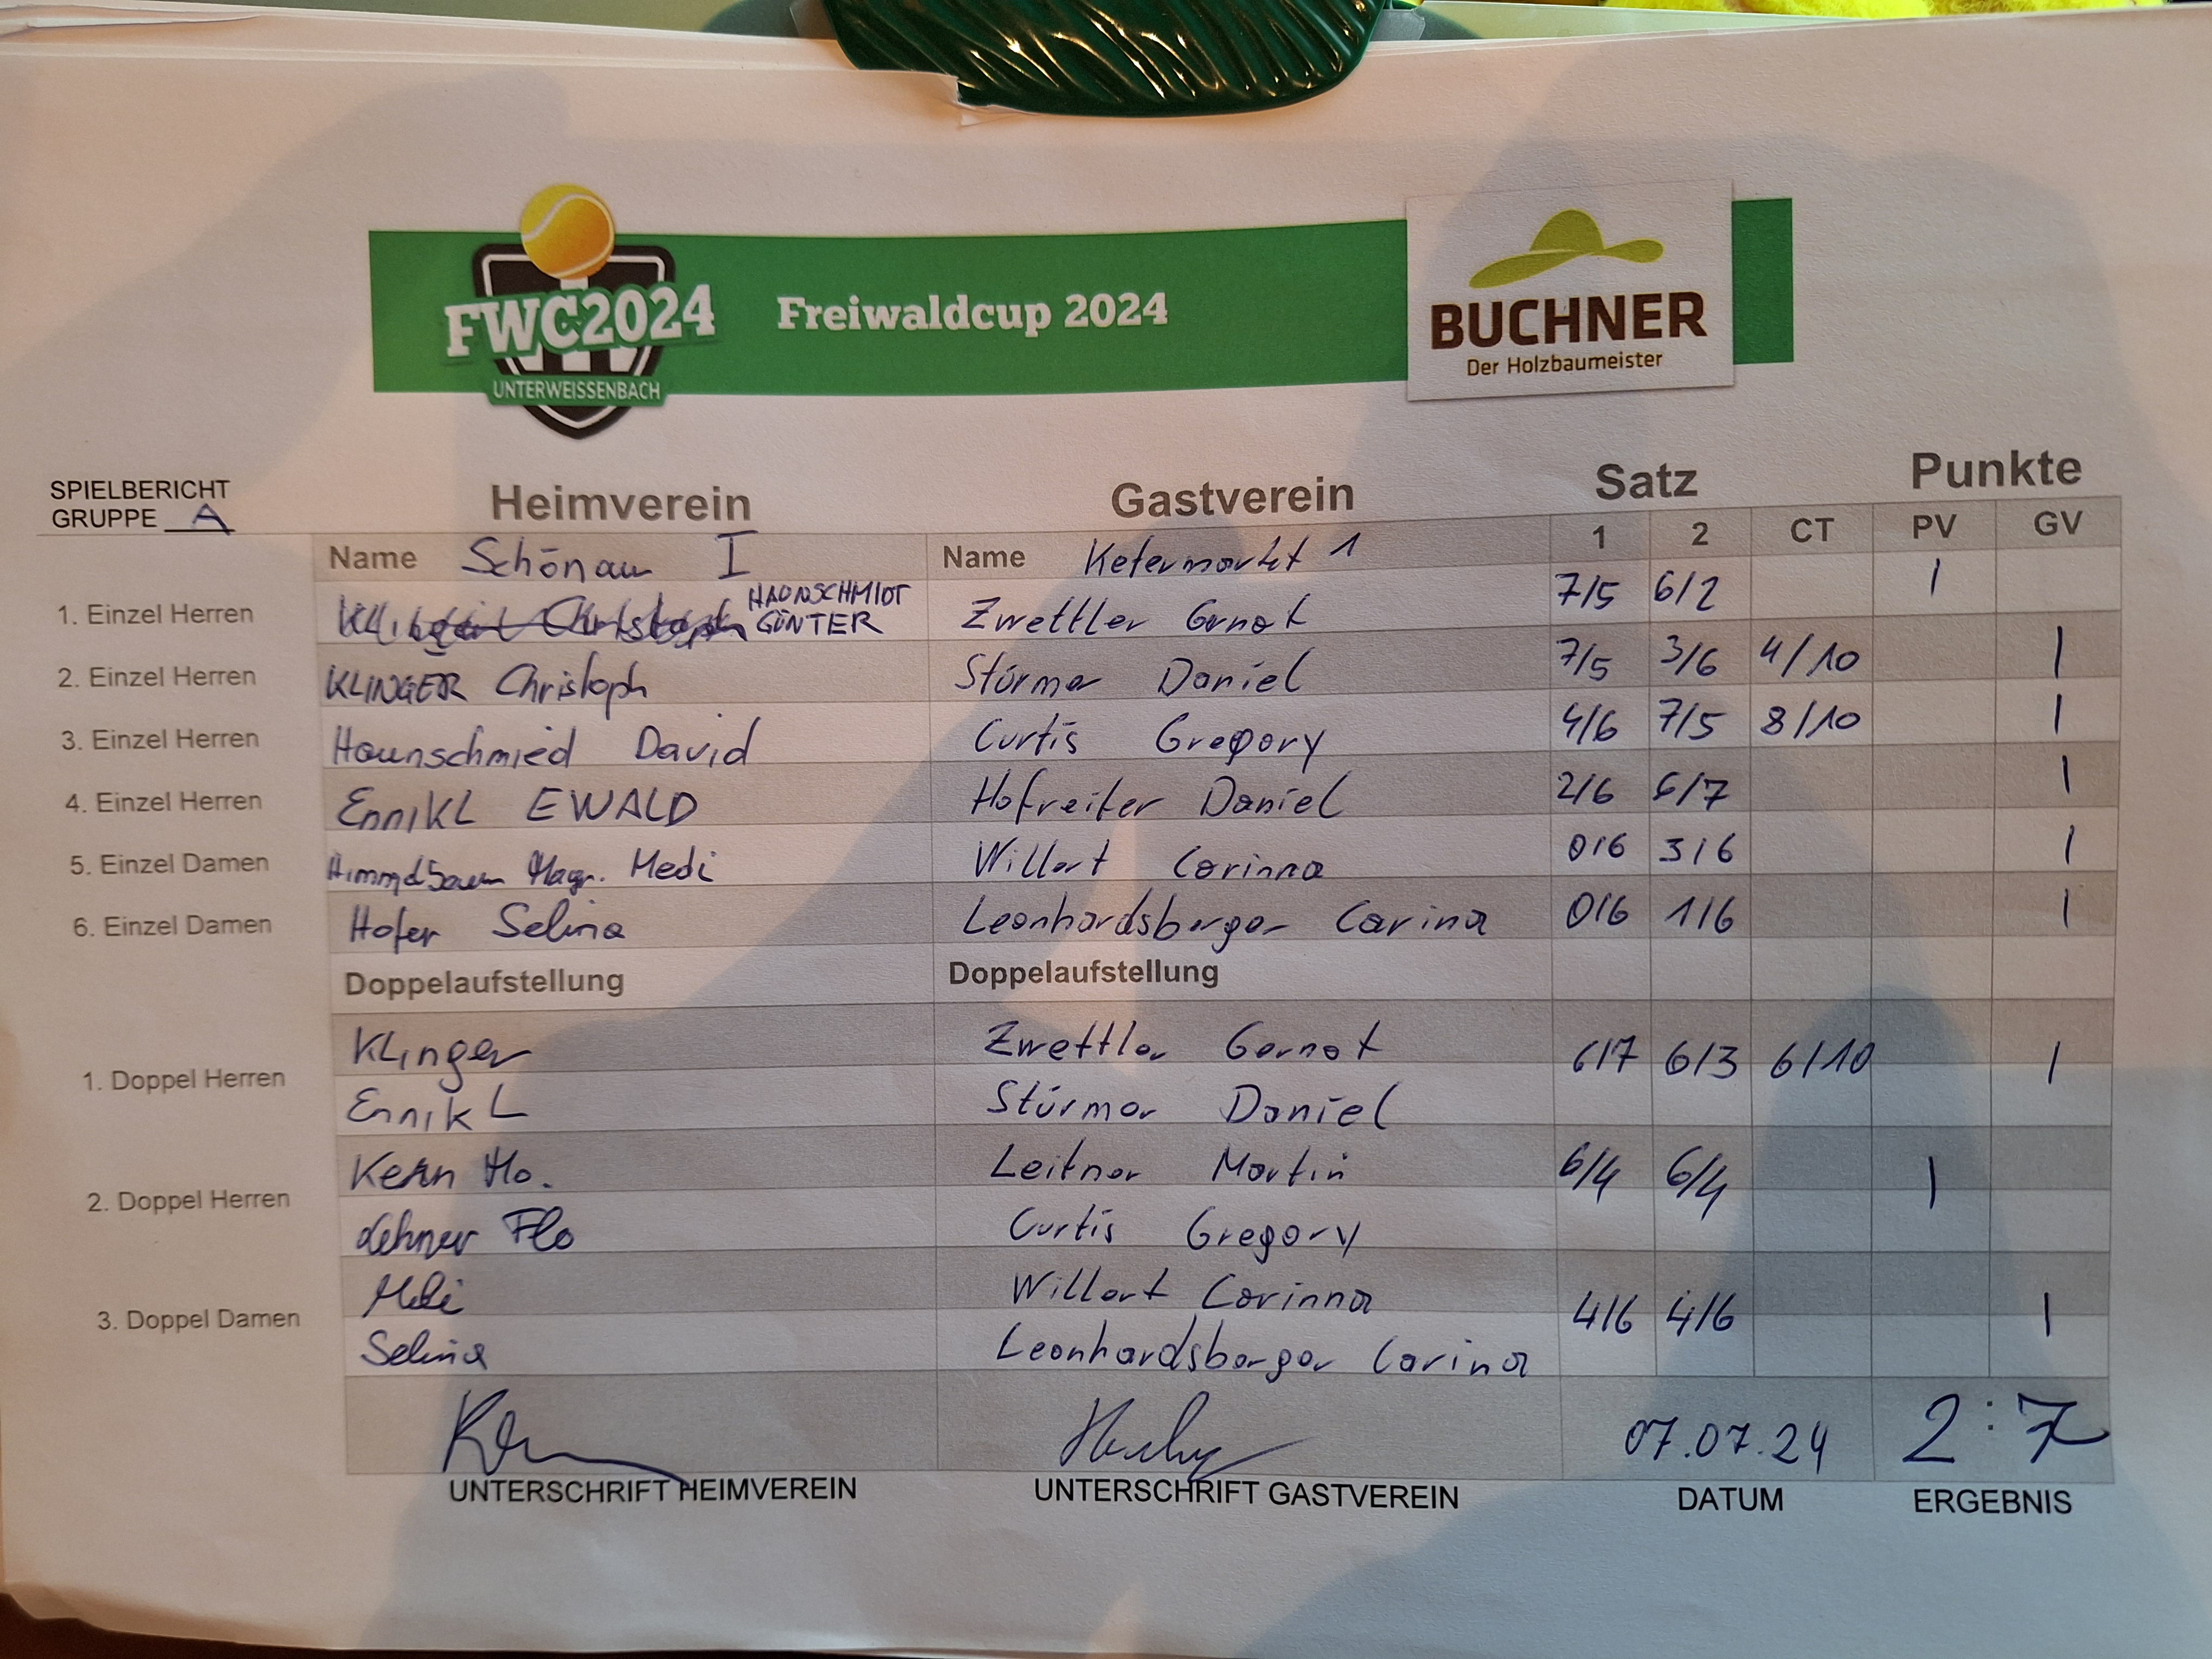 FWC2024
UNTERWEISSENBACH
Freiwaldcup 2024
BUCHNER
Der Holzbaumeister
SPIELBERICHT
GRUPPE A
Heimverein Gastverein Satz Punkte
Name Schönau I Name Kefermarkt 1 1 2 CT PV GV
1. Einzel Herren HAUNSCHMIDT GÜNTER Zwettler Gernot 7/5 6/2 1
2. Einzel Herren KLINGER Christoph Stürmer Daniel 7/5 3/6 4/10 1
3. Einzel Herren Haunschmied David Curtis Gregory 4/6 7/5 8/10 1
4. Einzel Herren EnnikL EWALD Hofreiter Daniel 2/6 6/7 1
5. Einzel Damen Himmelbauer Magr. Medi Willert Corinna 0/6 3/6 1
6. Einzel Damen Hofer Selina Leonhardsberger Carina 0/6 1/6 1
Doppelaufstellung Doppelaufstellung
Klinger Zwettler Gernot
1. Doppel Herren 6/7 6/3 6/10 1
EnnikL Stürmer Daniel
Kern Ho. Leitner Martin
2. Doppel Herren 6/4 6/4 1
Lehner Flo Curtis Gregory
Medi Willert Corinna
3. Doppel Damen 4/6 4/6 1
Selina Leonhardsberger Carina
07.07.24 2:7
UNTERSCHRIFT HEIMVEREIN UNTERSCHRIFT GASTVEREIN DATUM ERGEBNIS